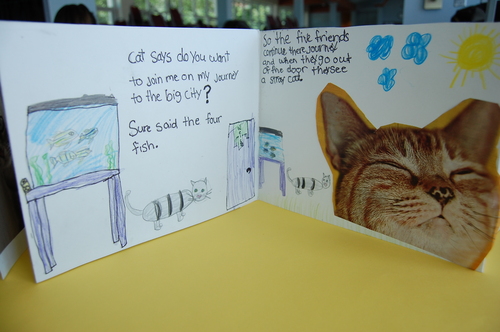 Cat says do you want
to join me on my journey
to the big city?
Sure said the four
fish.
So the five friends
continue there journey
and when they go out
of the door they see
a stray cat.